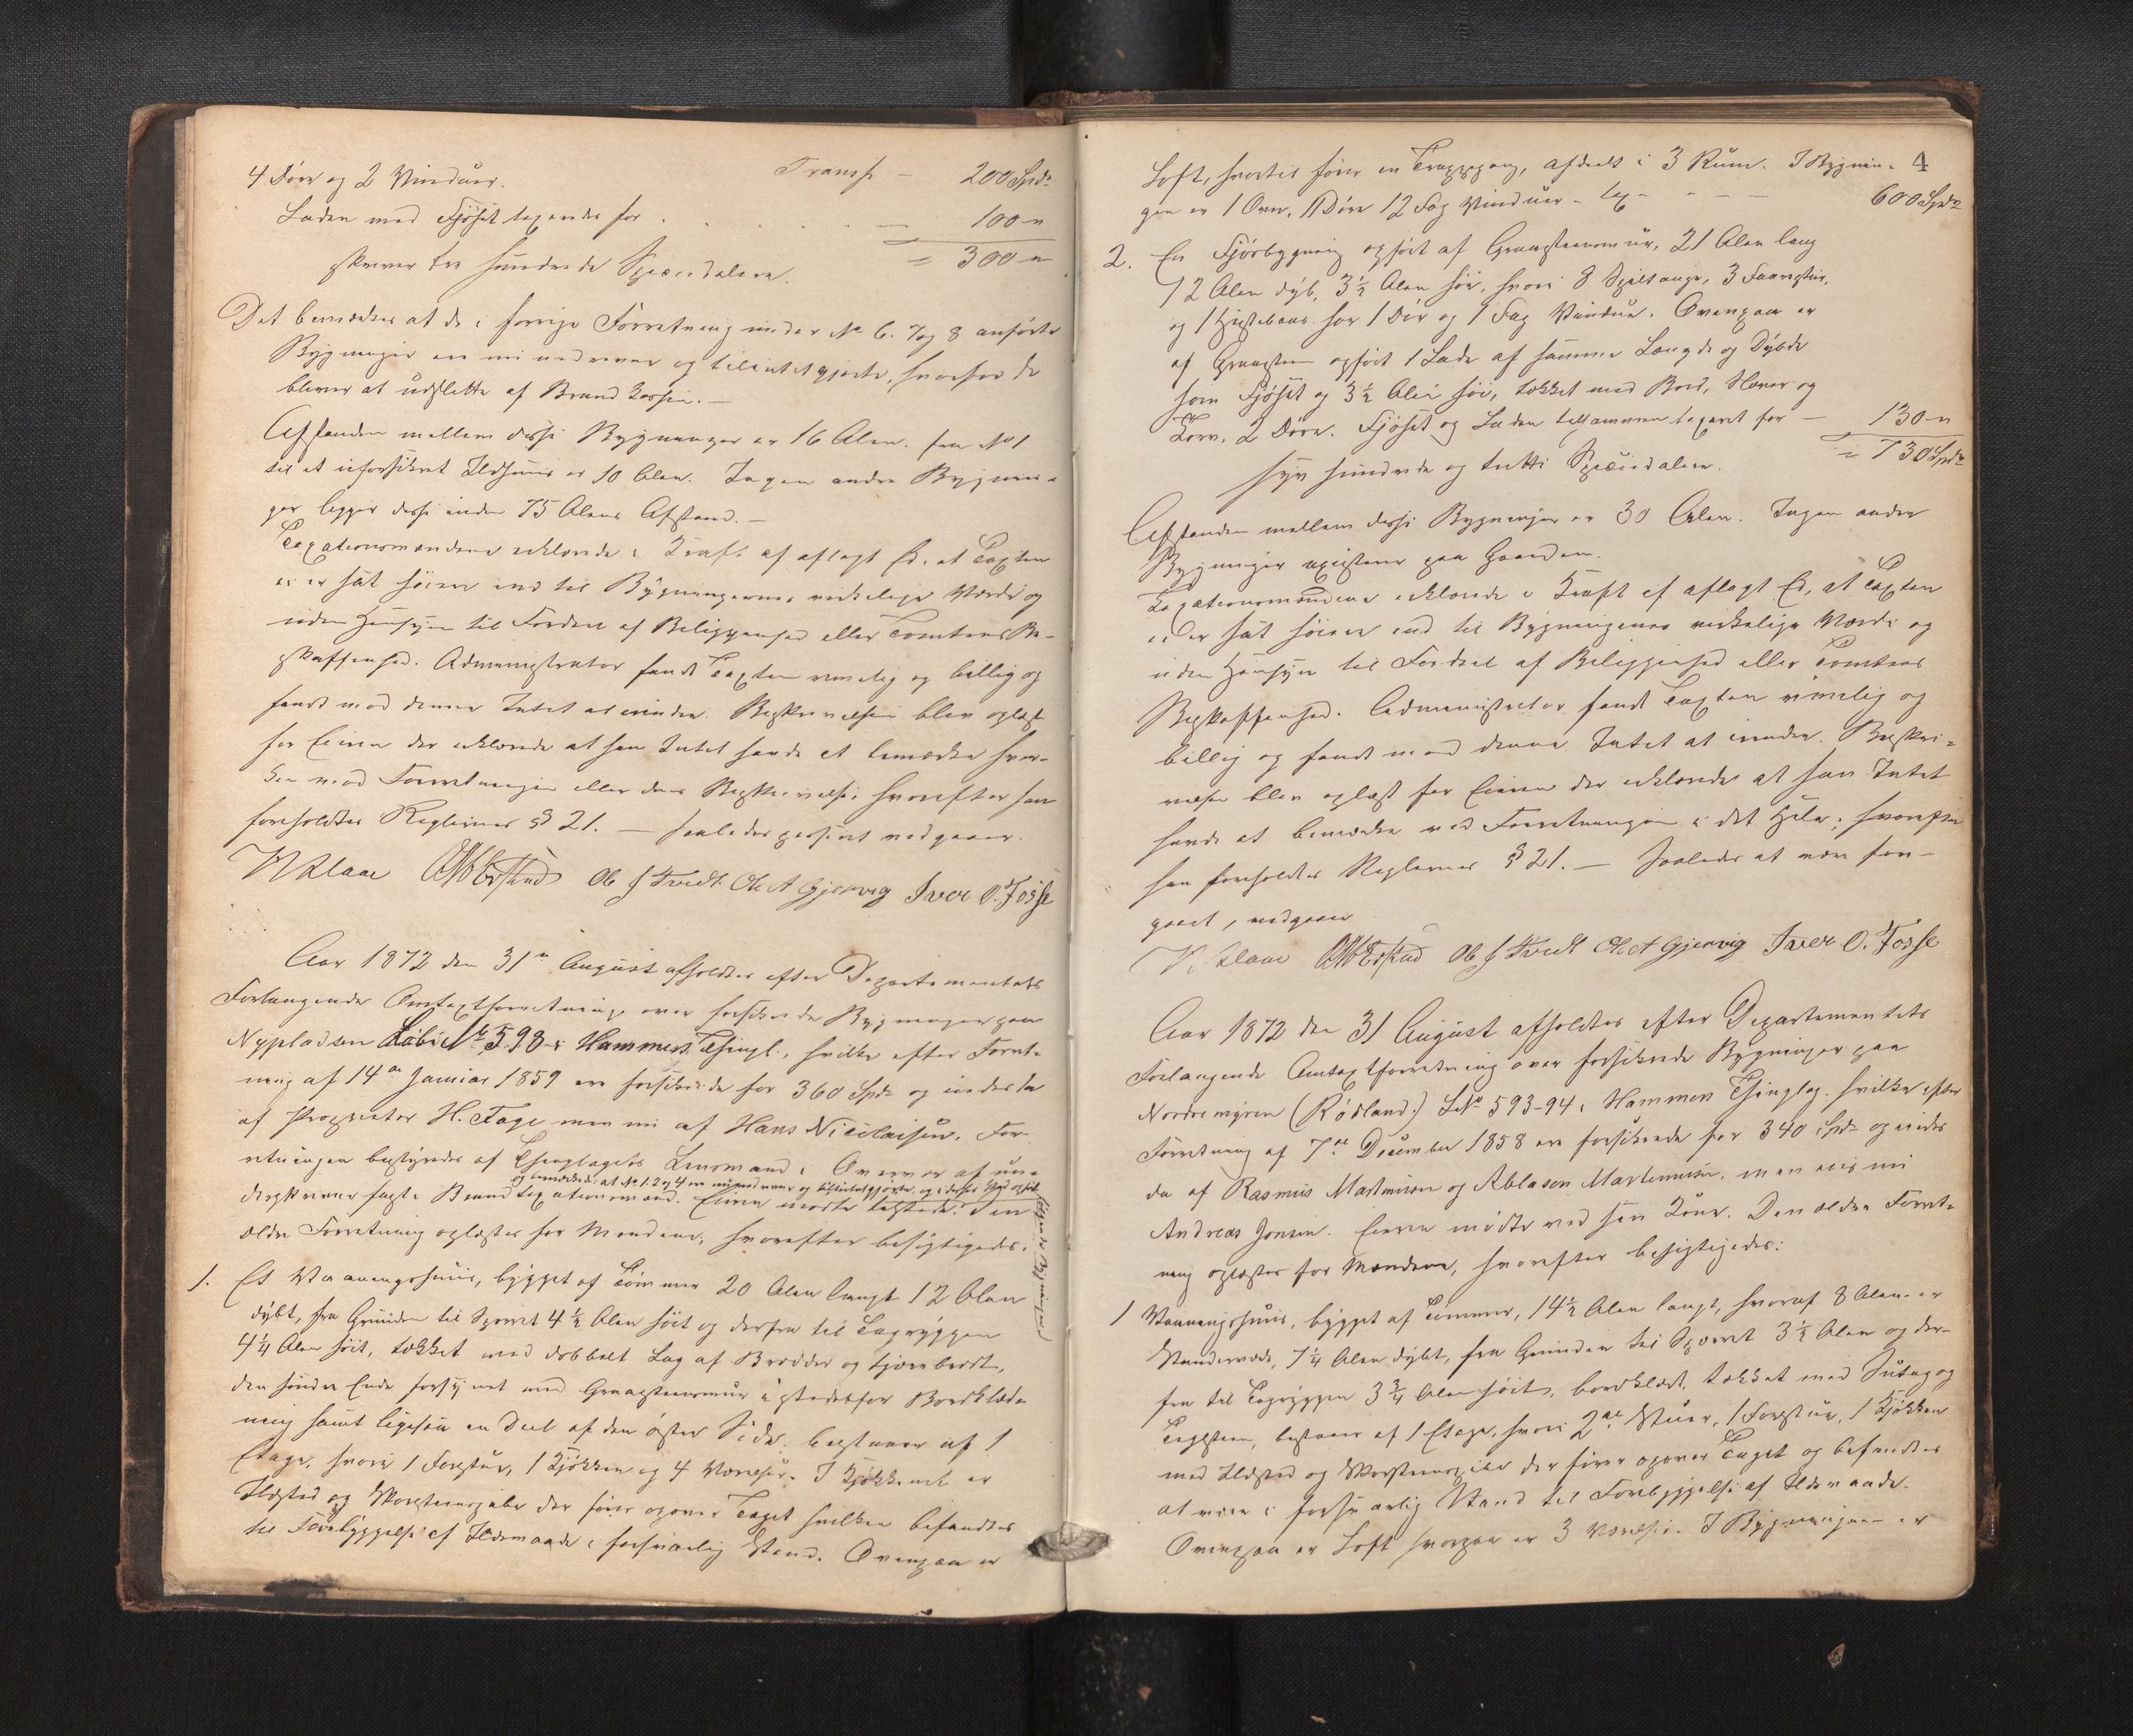 4 Døre og 2 Vinduer. Transp – 200 Spd
Laden med Fjøset taxeredes for . . . . . – 100 "
skriver tre Hundrede Speciedalere. = 300 "
Det bemærkes at de i forrige Forretning under No 6. 7 og 8 anførte
Bygninger ere nu nedrevne og tilintetgjorte, hvorfor de
bliver at udslette af Brandkassen. –
Afstanden mellem disse Bygninger er 16 Alen. fra No 1
til et uforsikret Ildhuus er 10 Alen. Ingen andre Bygnin-
ger ligger disse inden 75 Alens Afstand. –
Taxationsmændene erklærede i Kraft af aflagt Ed, at Taxten
ei er sat høiere end til Bygningernes virkelige Værdi og
uden Hensyn til Fordeel af Beliggenhed eller Tomtens Be-
skaffenhed. Administrator fandt Taxten rimelig og billig og
fandt mod denne Intet at erindre. Beskrivelsen blev oplæst
for Eieren der erklærede at han Intet havde at bemærke hver-
ken mod Forretningen eller dens Beskrivelse, hvorefter han
foreholdtes Reglernes § 21. – Saaledes passeret vedgaaer.
Ole J Tvedt Ole A Gjervig Iver O. Fosse
Aar 1872 den 31te August afholdtes efter Departementets
Forlangende Omtaxtforretning over forsikrede Bygninger paa
Nypladsen Løbe No 598 i Hammers Thingl., hvilke efter Forret-
ning af 14de Januar 1859 ere forsikrede for 360 Spd og eiedes da
af Proprietær H. Fage men nu af Hans Nicolaisen. For-
retningen bestyredes af Thinglagets Lensmand i Overvær af un-
og bemærkedes at No 1. 2 og 4 ere nu nedrevne og tilintetgjorte, og i deres Sted opført
derskrevne faste Brandtaxationsmænd. Eieren mødte tilstede. Den
følgende Bygninger
ældre Forretning oplæstes for Mændene, hvorefter besigtigedes:
1. Et Vaaningshuus, bygget af Tømmer 20 Alen langt 12 Alen
dybt, fra Grunden til Sparret 4½ Alen høit og derfra til Tagryggen
4¼ Alen høit, tækket med dobbelt Lag af Brædder og tjærebredt,
den søndre Ende forsynet med Graasteensmuur istedetfor Bordklæd-
ning samt ligesaa en Deel af den østre Side. bestaaer af 1
Etage, hvori 1 Forstue, 1 Kjøkken og 4 Værelser. I Kjøkkenet er
Ildsted og Skorsteenspibe der fører opover Taget hvilken befandtes
til Forebyggelse af Ildsvaade i forsvarlig Stand. Ovenpaa er
4
Loft, hvortil fører en Trappegang, afdeelt i 3 Rum. I Bygnin-
gen er 1 Ovn, 11 Døre 12 Fag Vinduer – tax – – – 600 Spd
2. En Fjøsbygning opført af Graasteensmuur, 21 Alen lang
12 Alen dyb, 3½ Alen høi, hvori 8 Spiltauge, 3 Faarestier,
og 1 Hestebaas har 1 Dør og 1 Fag Vindue. Ovenpaa er
af Graasteen opført 1 Lade af samme Længde og Dybde
som Fjøset og 3½ Alen høi, tækket med Bord, Næver og
Torv, 2 Døre. Fjøset og Laden tilsammen taxeret for – 130 "
syv Hundrede og tretti Speciedalere. = 730 Spd
Afstanden mellem disse Bygninger er 30 Alen. Ingen andre
Bygninger existerer paa Gaarden.
Taxationsmændene erklærede i Kraft af aflagt Ed, at Taxten
ei er sat høiere end til Bygningernes virkelige Værdi og
uden Hensyn til Fordeel af Beliggenhed eller Tomtens
Beskaffenhed. Administrator fandt Taxten rimelig og
billig og fandt mod denne Intet at erindre. Beskri-
velsen blev oplæst for Eieren der erklærede at han Intet
havde at bemærke ved Forretningen i det Hele; hvorefter
han foreholdtes Reglernes § 21. – Saaledes at være fore-
gaaet, vedgaaer
Ole J Tvedt Ole A Gjervig Iver O. Fosse
Aar 1872 den 31 August afholdtes efter Departementets
Forlangende Omtaxtforretning over forsikrede Bygninger paa
Nordre myren (Rødland) L No 593-94 i Hammers Thinglag. hvilke efter
Forretning af 7de December 1858 ere forsikrede for 340 Spd og eiedes
da af Rasmus Martinusen og Ablason Martinusen, men eies nu
Andreas Jonsen. Eieren mødte ved sin Kone. Den ældre Forret-
ning oplæstes for Mændene, hvorefter besigtigedes:
1 Vaaningshuus, bygget af Tømmer, 14½ Alen langt, hvoraf 8 Alen er
7¼ Alen dybt, fra Grunden til Sparret 3½ Alen og der-
fra til Tagryggen 3¾ Alen høit, bordklædt, tækket med Sutag og
Tagsteen, bestaaer af 1 Etage, hvori 2de Stuer, 1 Forstue, 1 Kjøkken
med Ildsted og Skorsteenspibe der fører opover Taget og befandtes
at være i forsvarlig Stand til Forebyggelse af Ildsvaade.
Ovenpaa er Loft hvorpaa er 3 Værelser. I Bygningen er